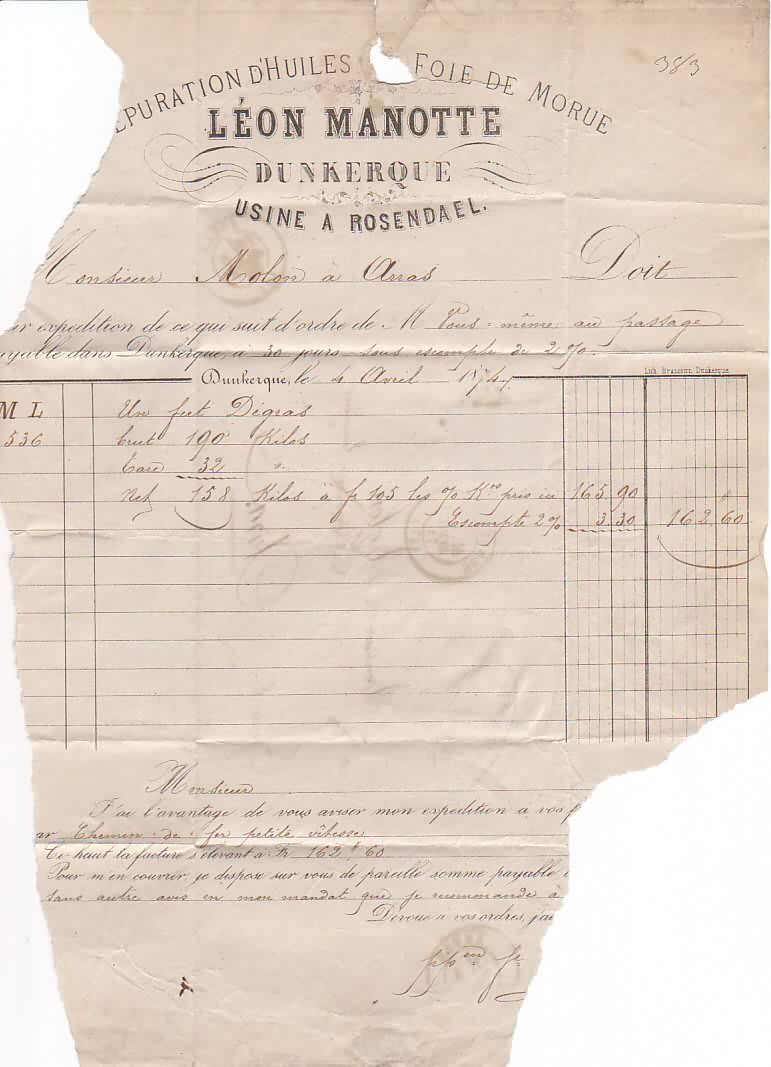 383
EPURATION D'HUILES FOIE DE MORUE
LÉON MANOTTE
DUNKERQUE
USINE A ROSENDAEL.
Monsieur Molon à Arras Doit
expedition de ce qui suit d'ordre de M Vous-même au passage
ayable dans Dunkerque, à 30 jours sous escompte de 2%.
Dunkerque, le 4 Avril 1874
Lith. Brasseur, Dunkerque
M L Un fut Dégras
536 brut 190 Kilos
Tare 32 "
Net 158 Kilos à fr 105 les % Kos pris ici 165.90
Escompte 2% 3.30 162 f 60
Monsieur
J'ai l'avantage de vous aviser mon expedition a vos f
ar Chemin de fer petite vitesse
Ci-haut la facture s'élevant a fr 162 f 60
Pour m'en couvrir, je dispose sur vous de pareille somme payable
sans autre avis en mon mandat que je recommande à
Dévoué a vos ordres, j'ai